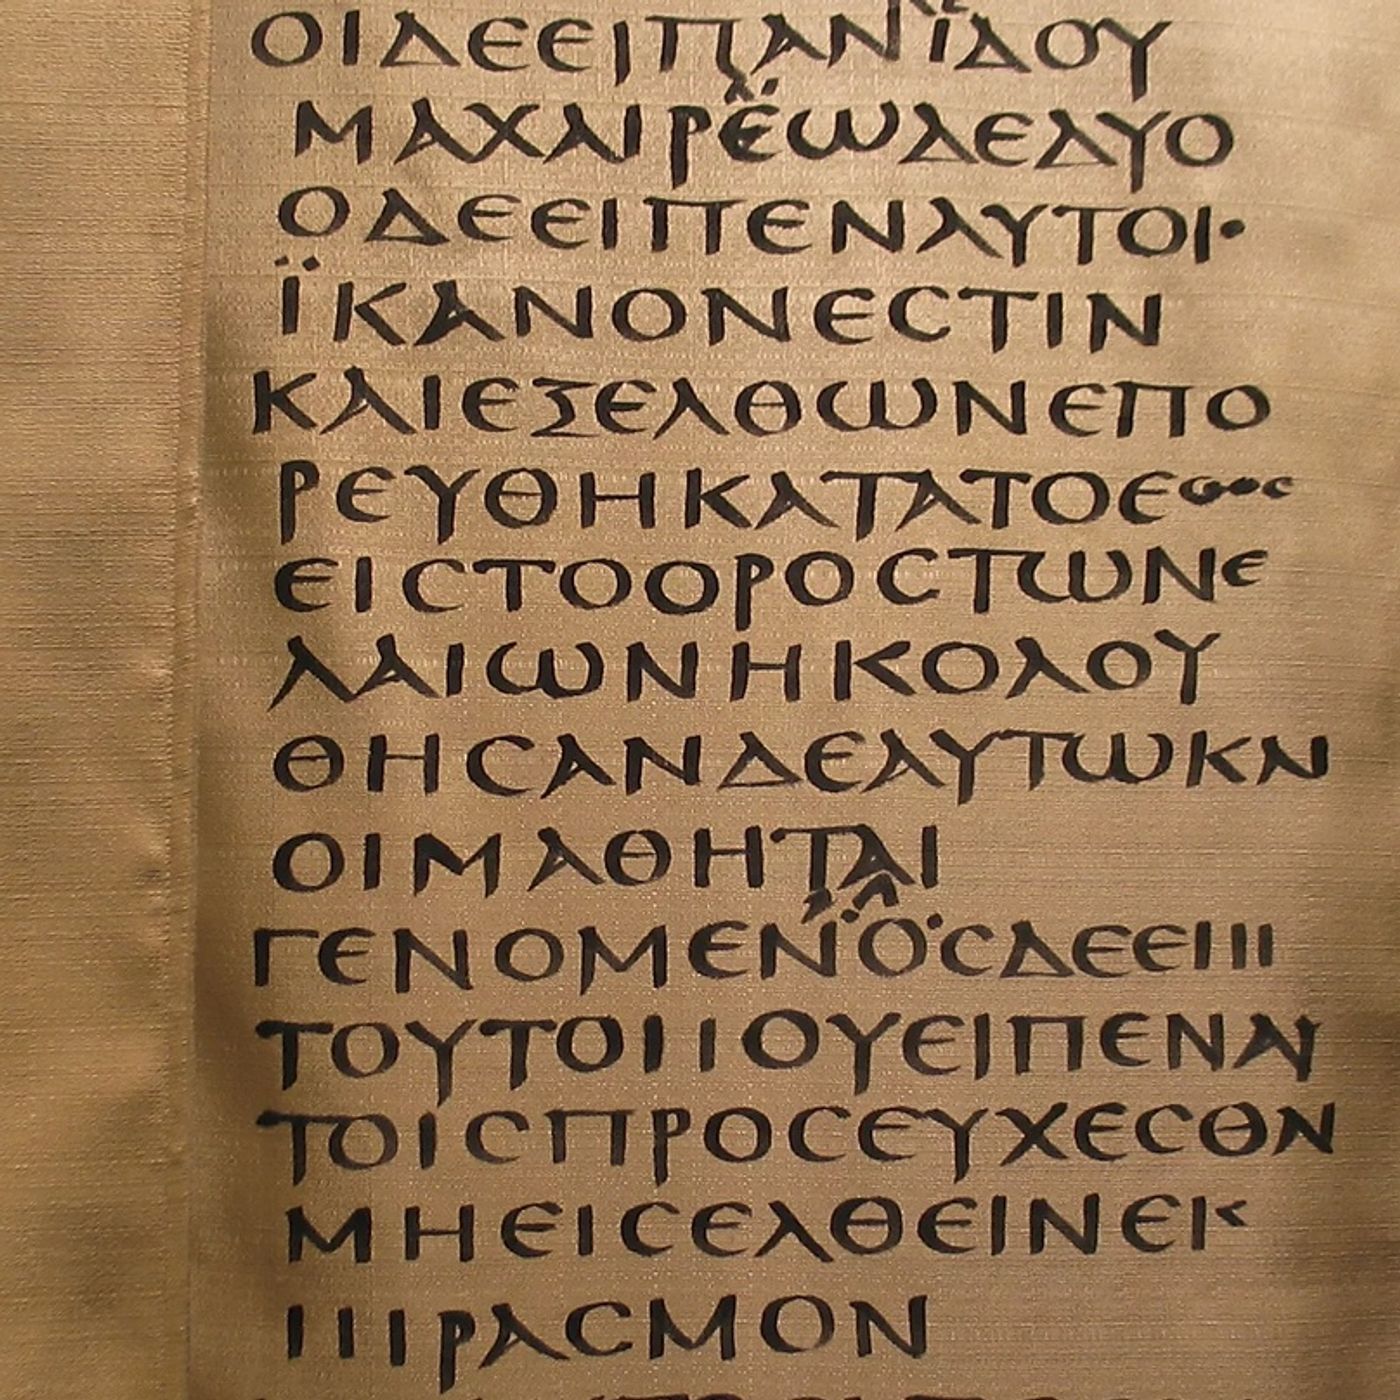 ΟΙΔΕΕΙΠΑΝΪΔΟΥ
ΜΑΧΑΙΡΕΩΔΕΔΥΟ
ΟΔΕΕΙΠΕΝΑΥΤΟΙ·
ΪΚΑΝΟΝΕϹΤΙΝ
ΚΑΙΕΞΕΛΘΩΝΕΠΟ
ΡΕΥΘΗΚΑΤΑΤΟΕΘΟϹ
ΕΙϹΤΟΟΡΟϹΤΩΝΕ
ΛΑΙΩΝΗΚΟΛΟΥ
ΘΗϹΑΝΔΕΑΥΤΩΚΑΙ
ΟΙΜΑΘΗΤΑΙ
ΓΕΝΟΜΕΝΟϹΔΕΕΙΙΙ
ΤΟΥΤΟΙΙΟΥΕΙΠΕΝΑΥ
ΤΟΙϹΠΡΟϹΕΥΧΕϹΘΑΙ
ΜΗΕΙϹΕΛΘΕΙΝΕΙϹ
ΙΙΙΡΑϹΜΟΝ